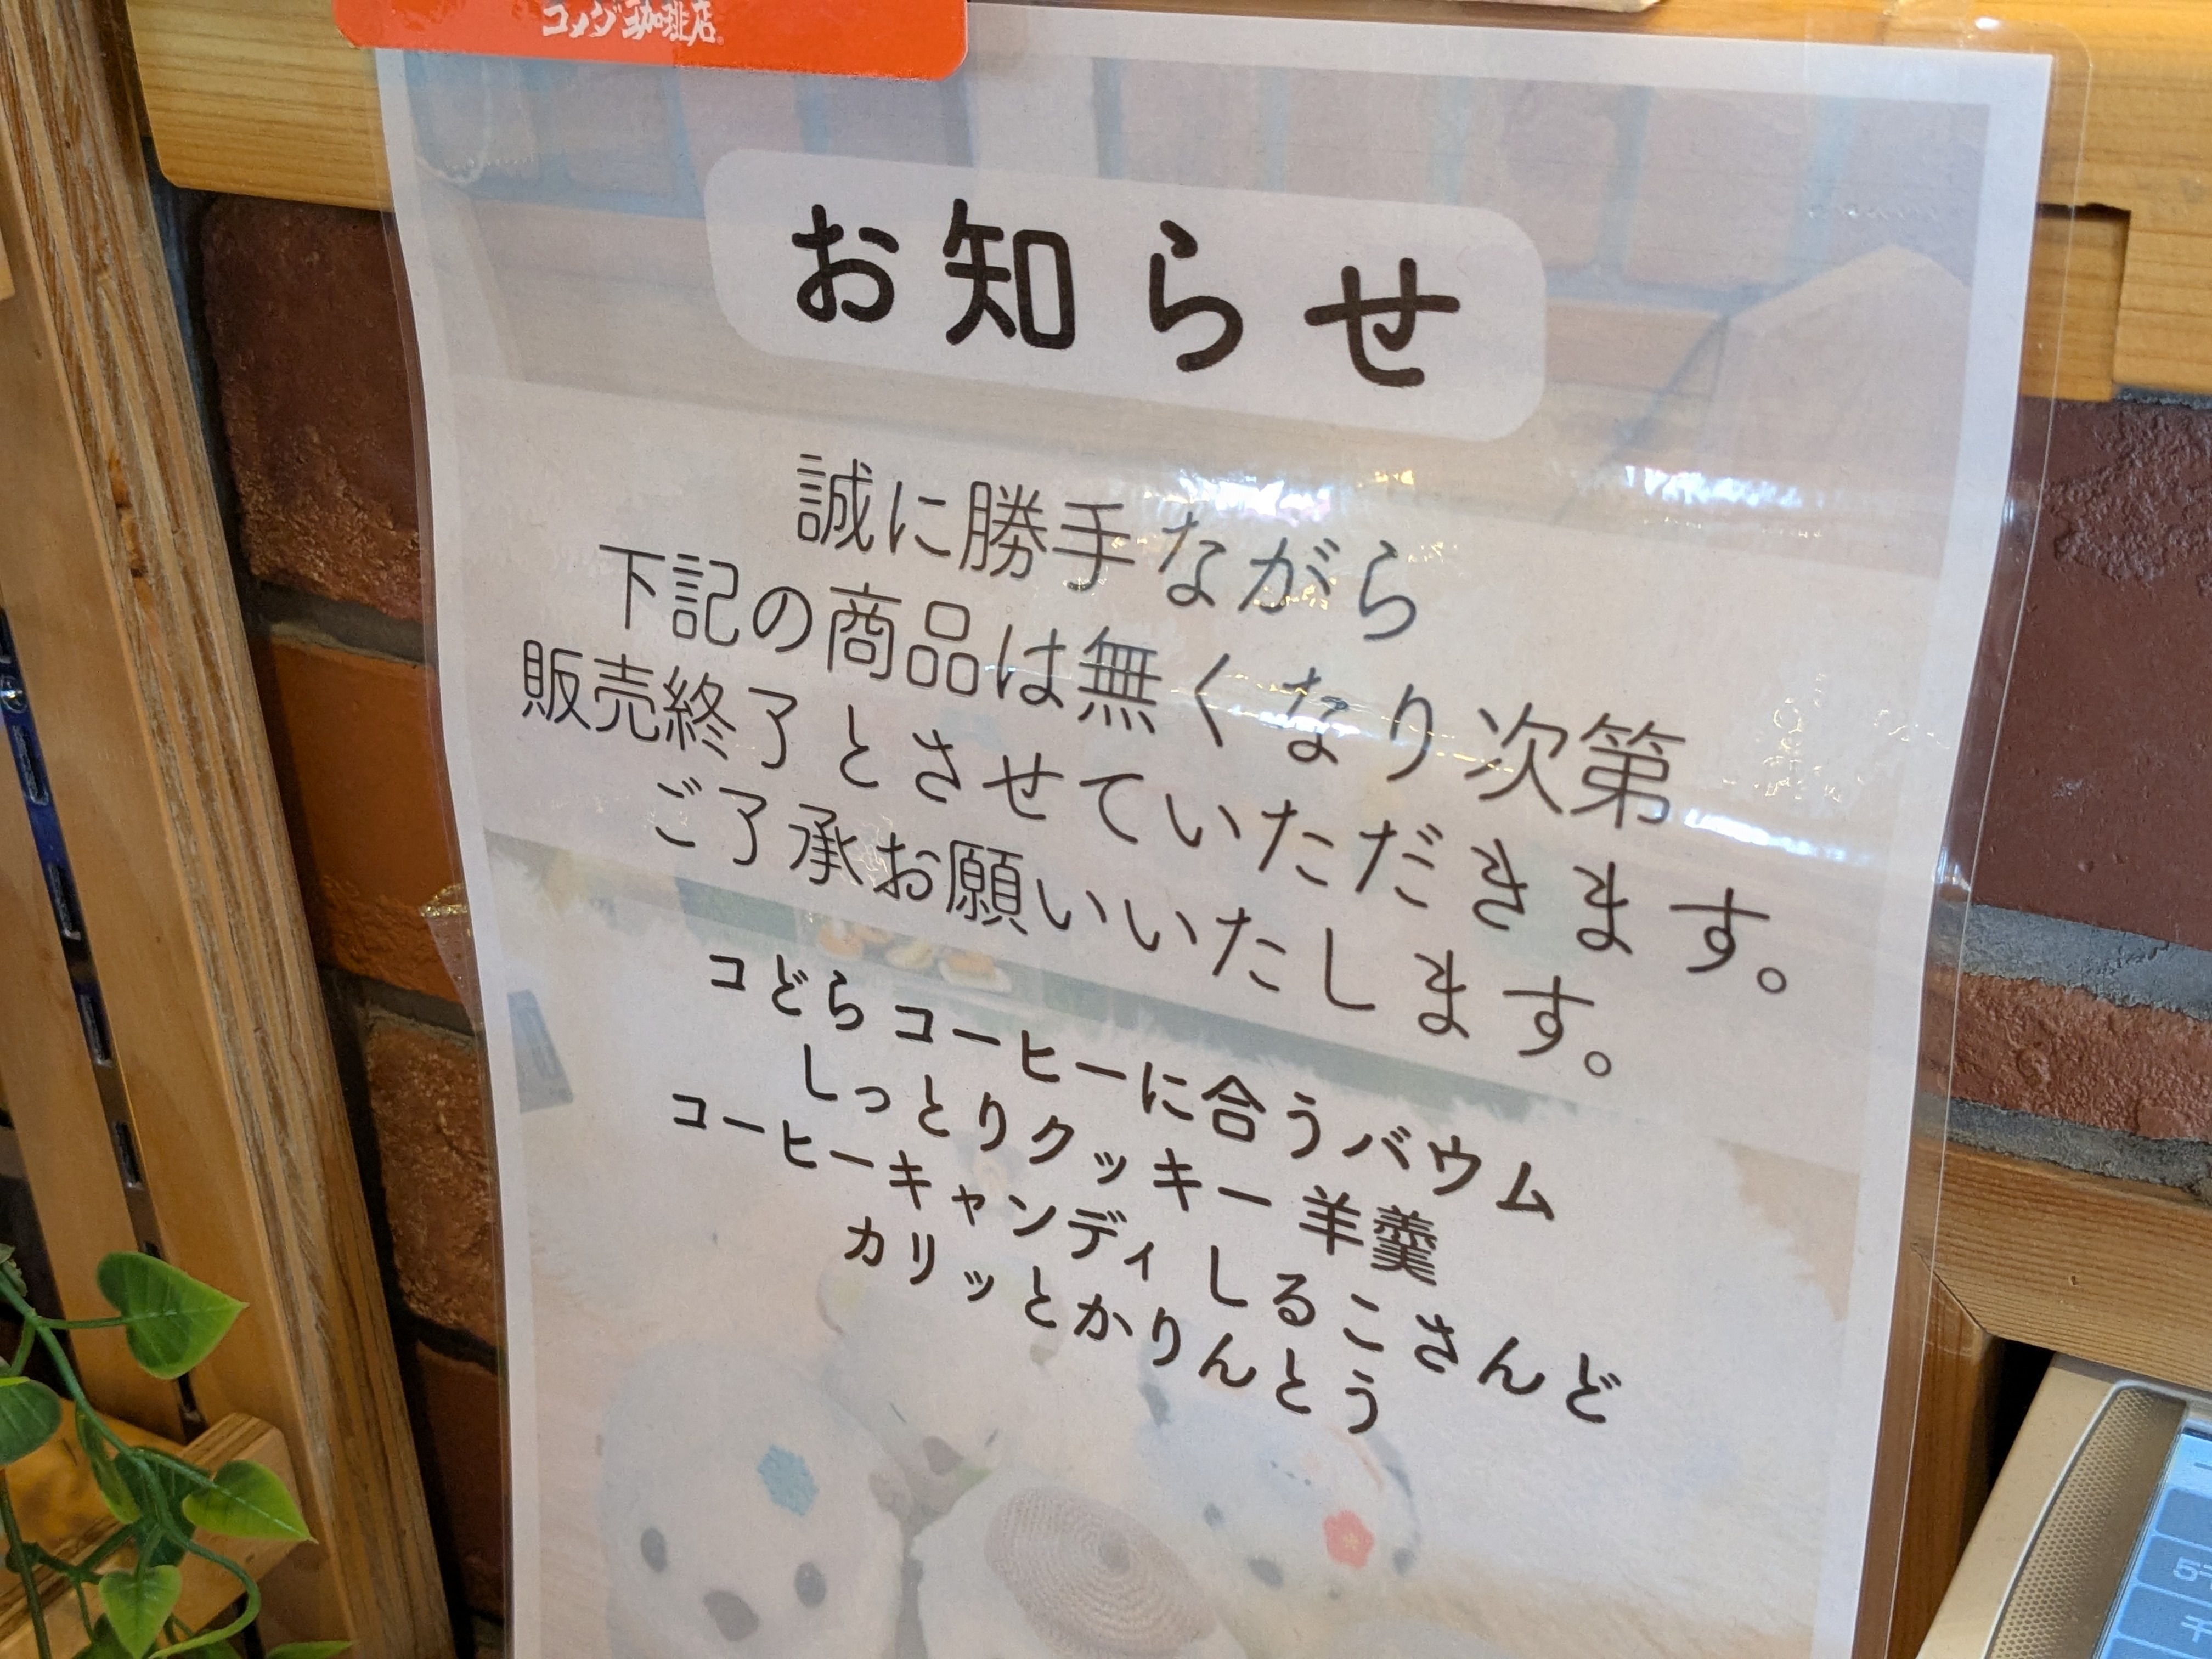 コメダ珈琲店
お知らせ
誠に勝手ながら
下記の商品は無くなり次第
販売終了とさせていただきます。
ご了承お願いいたします。
コどら コーヒーに合うバウム
しっとりクッキー 羊羹
コーヒーキャンディ しるこさんど
カリッとかりんとう